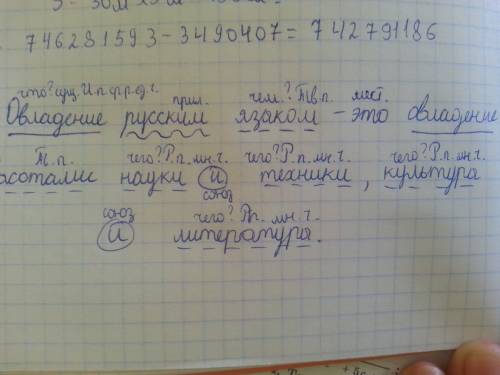 746281593-3490407=742791186
что? сущ. И.п. ср.р. ед.ч. прил. чем? Тв.п. мест.
Овладение русским язаком - это овладение
Т.п. чего? Р.п. мн.ч. чего? Р.п. мн.ч. чего? Р.п. мн.ч.
науки и техники, культура
союз
союз чего? Р.п. мн.ч.
и литература.